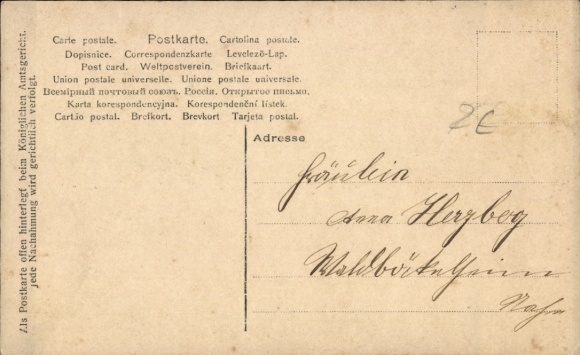 Carte postale. Postkarte. Cartolina postale.
Dopisnice. Correspondenzkarte Levelező-Lap.
Post card. Weltpostverein. Briefkaart.
Union postale universelle. Unione postale universale.
Всемірный почтовый союзъ. Россія. Открытое письмо.
Karta korespondencyjna. Korespondenční lístek.
Cartão postal. Brefkort. Brevkort Tarjeta postal.
Als Postkarte offen hinterlegt beim Königlichen Amtsgericht.
jede Nachahmung wird gerichtlich verfolgt.
2€
Adresse
Fräulein
Anna Herzbog
Waldböckelheim
Nahe